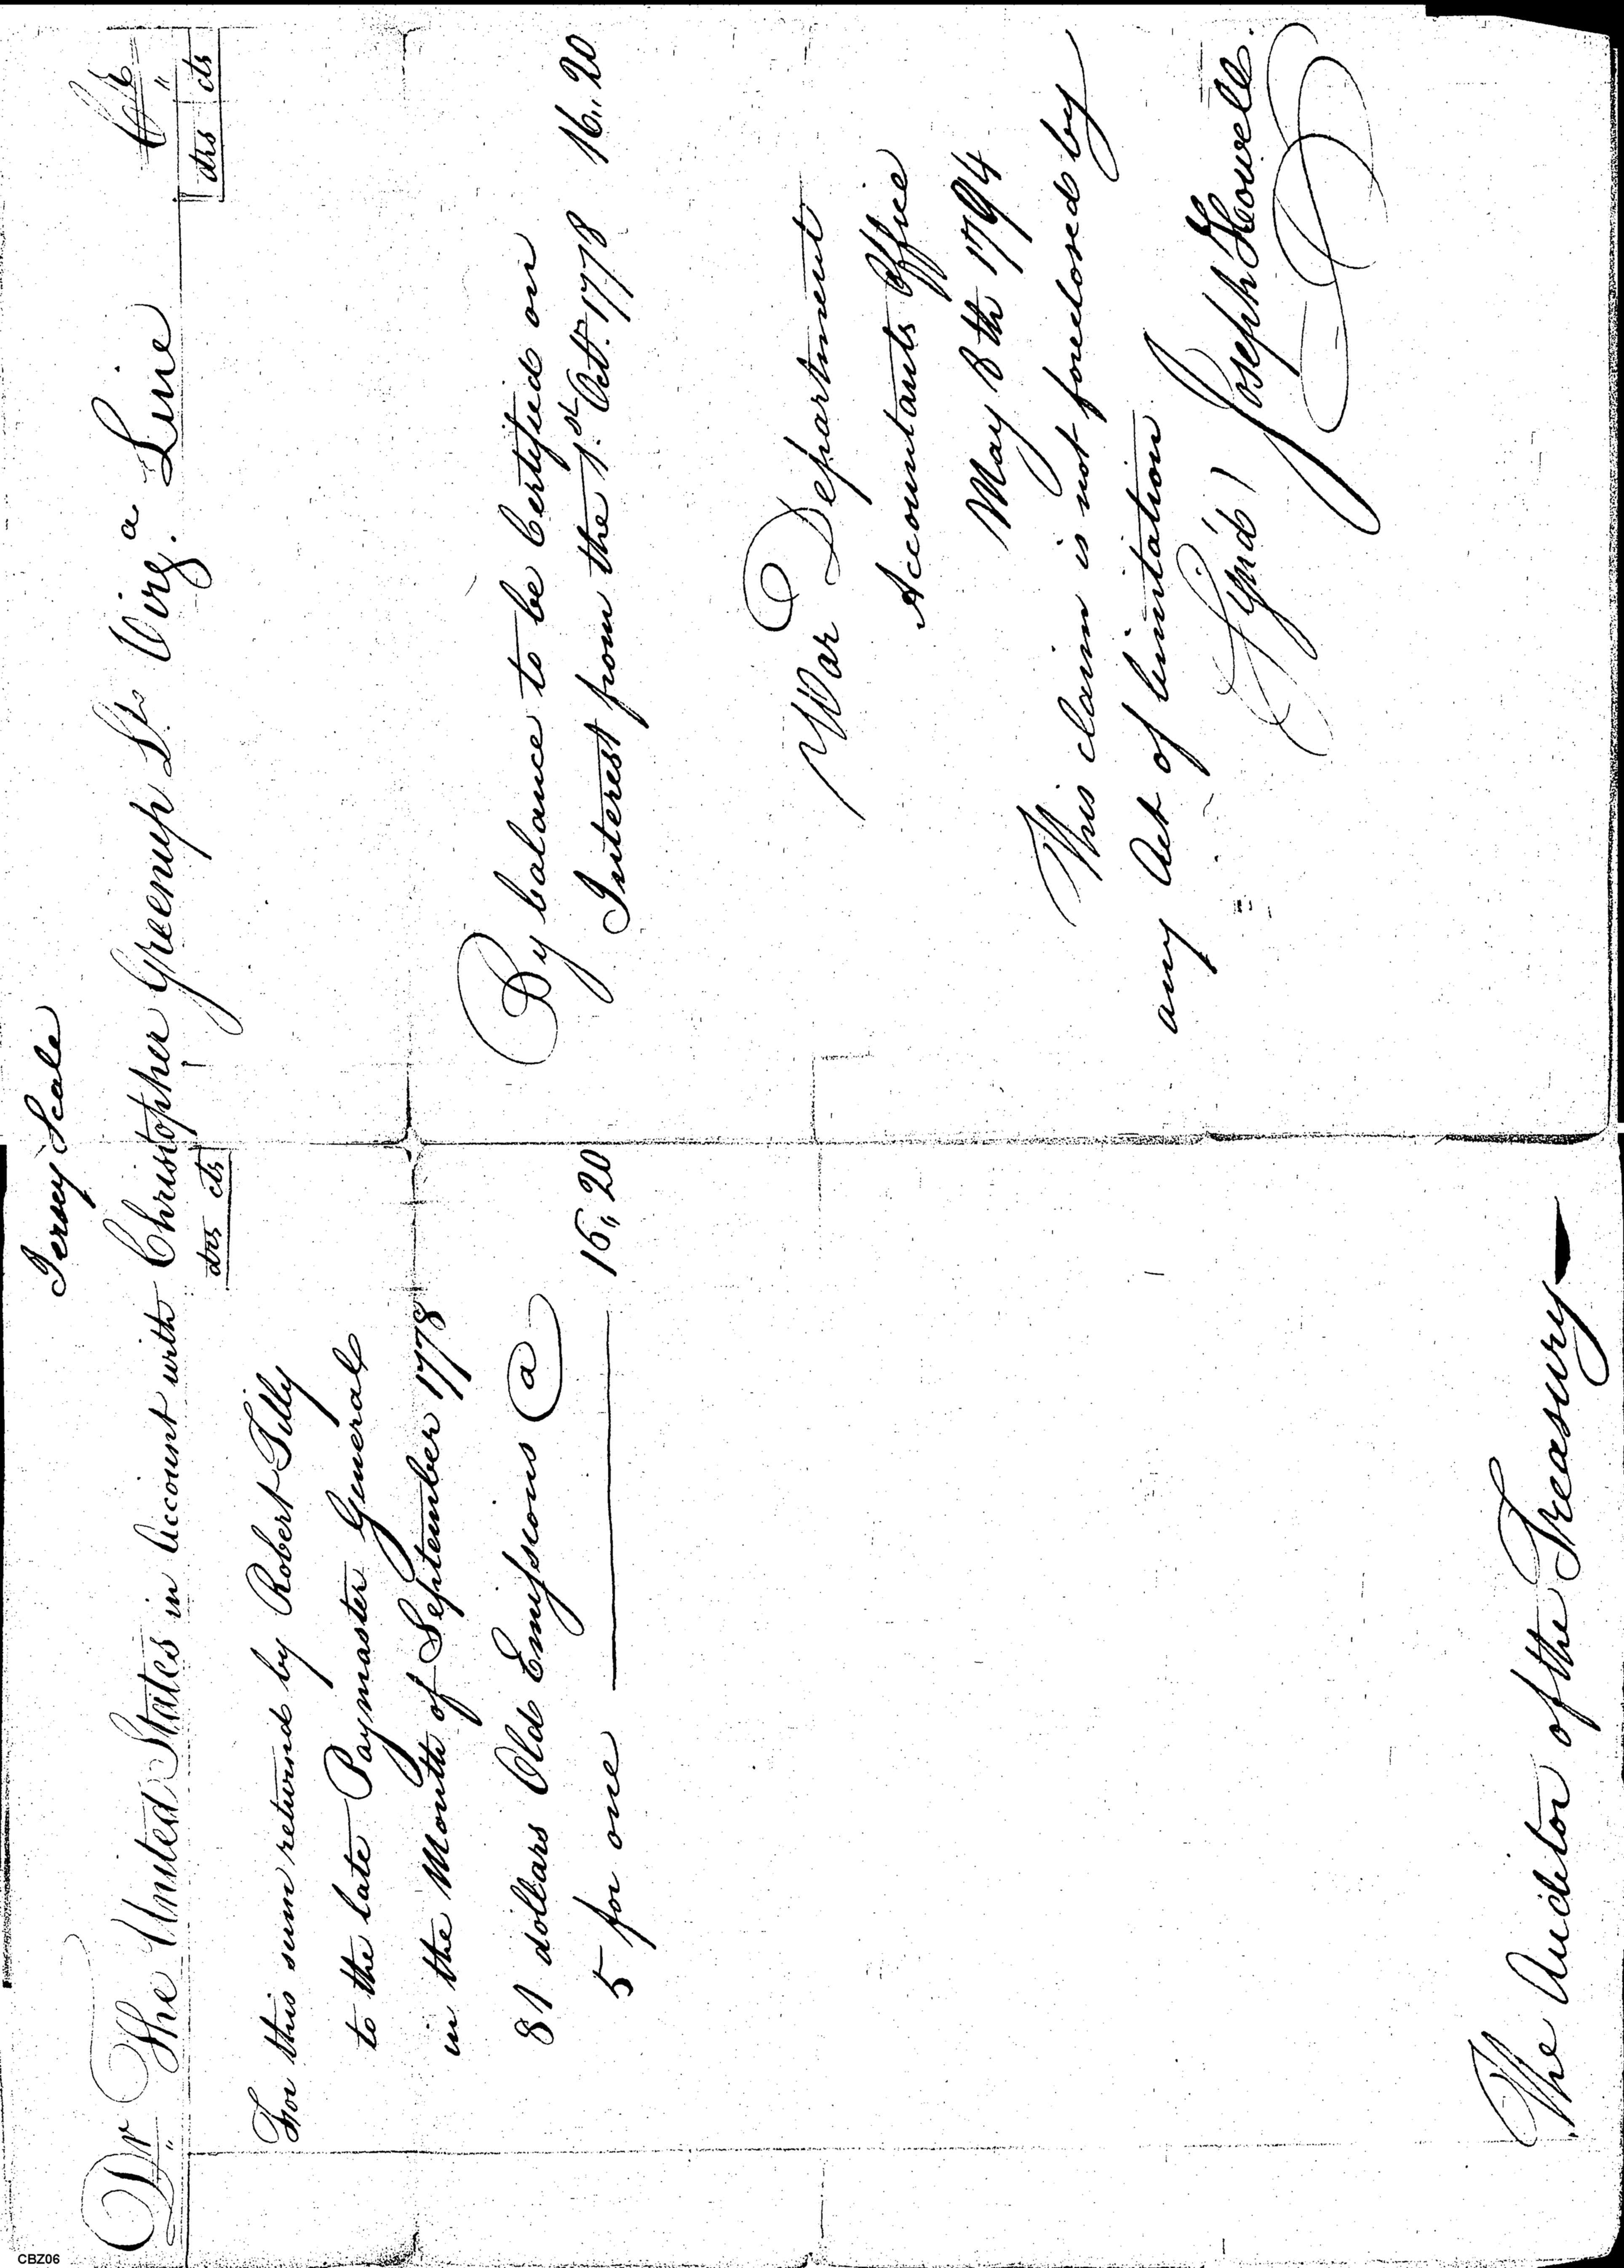 Jersey Scale
Dr The United States in Account with Christopher Greenup Lt. Virga. Line Cr
drs cts
For this sum returned by Robert Tilly
to the late Paymaster General
in the Month of September 1778
81 dollars Old Emissions @
5 for one 16,, 20
The Auditor of the Treasury
drs cts
By balance to be Certified on
Interest from the 1st. Octr. 1778 16,, 20
War Department
Accountants Office
May 8th 1794
This claim is not foreclosed by
any Act of limitation
(Sign'd) Joseph Howell.
CBZ06